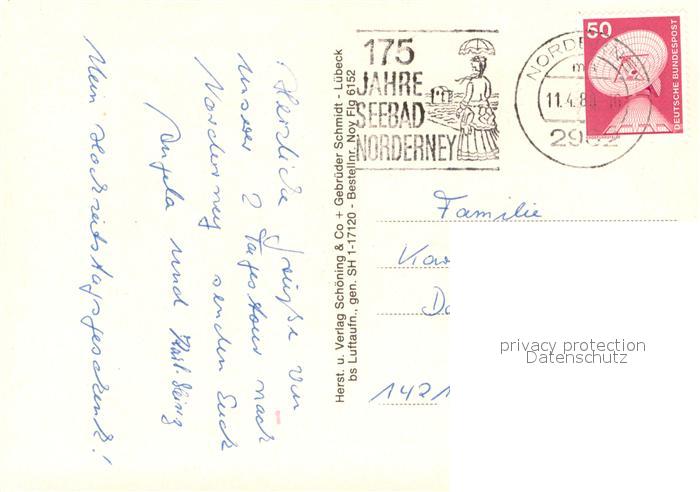 ! Herzliche Grüße von
unserer 2 Tagestour nach
Norderney senden Euch
Angela und Karl-Heinz
Mein Hochzeitstagsgeschenk!
Herst. u. Verlag Schöning & Co + Gebrüder Schmidt - Lübeck
bs Luftaufn., gen. SH 1-17120 - Bestellnr. Noy Flg 6152
175
JAHRE
SEEBAD
NORDERNEY
11.4.8
2982
50
DEUTSCHE BUNDESPOST
Familie
1421
privacy protection
Datenschutz